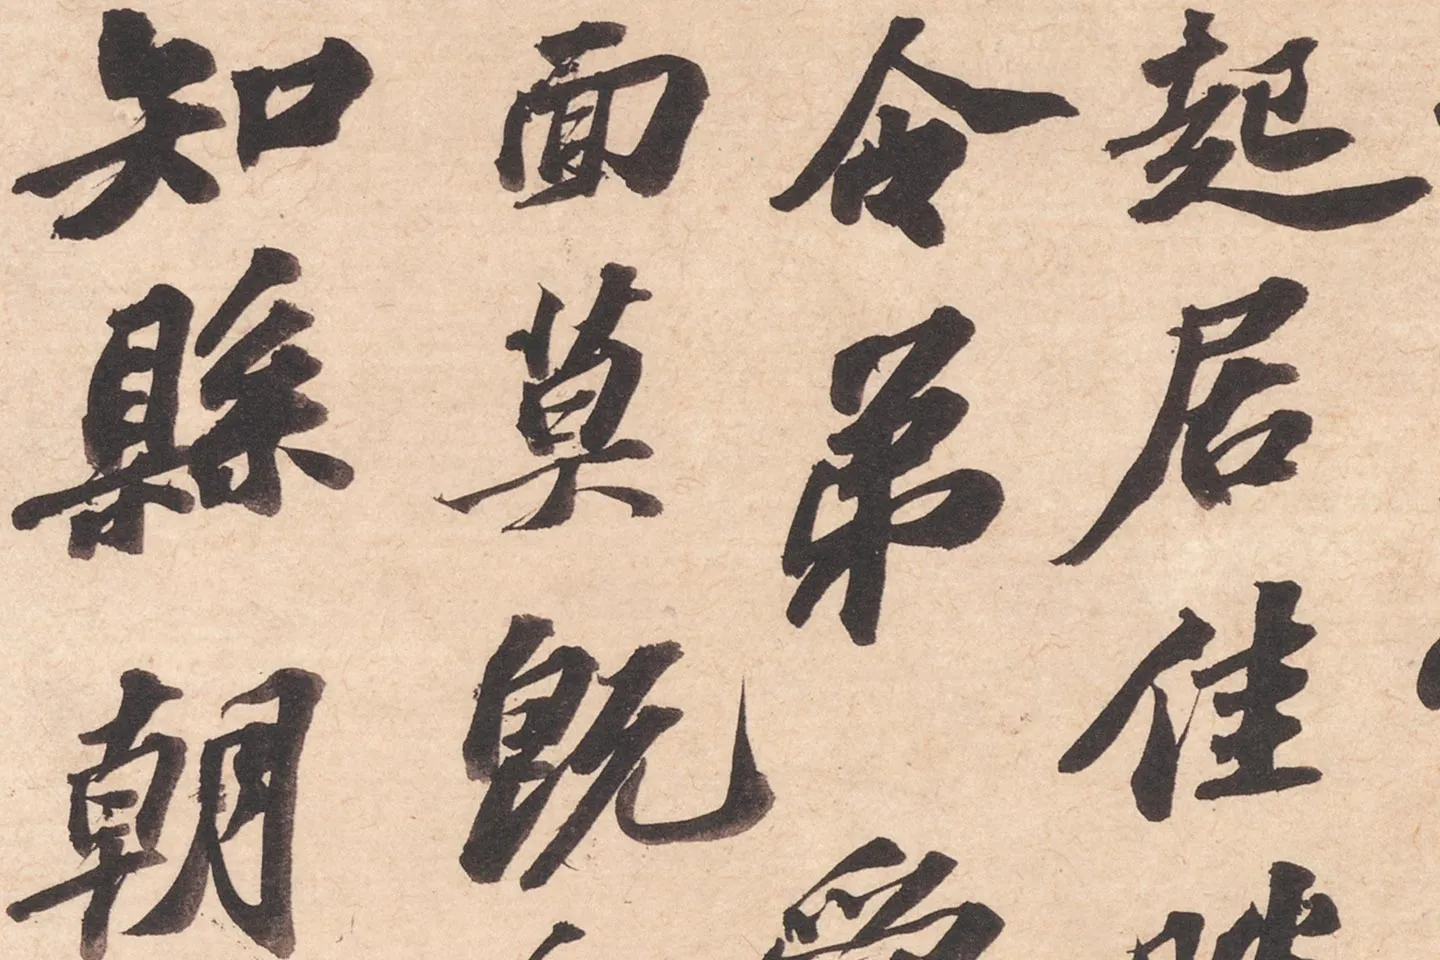 起居佳勝
舍弟
面莫既
知縣朝